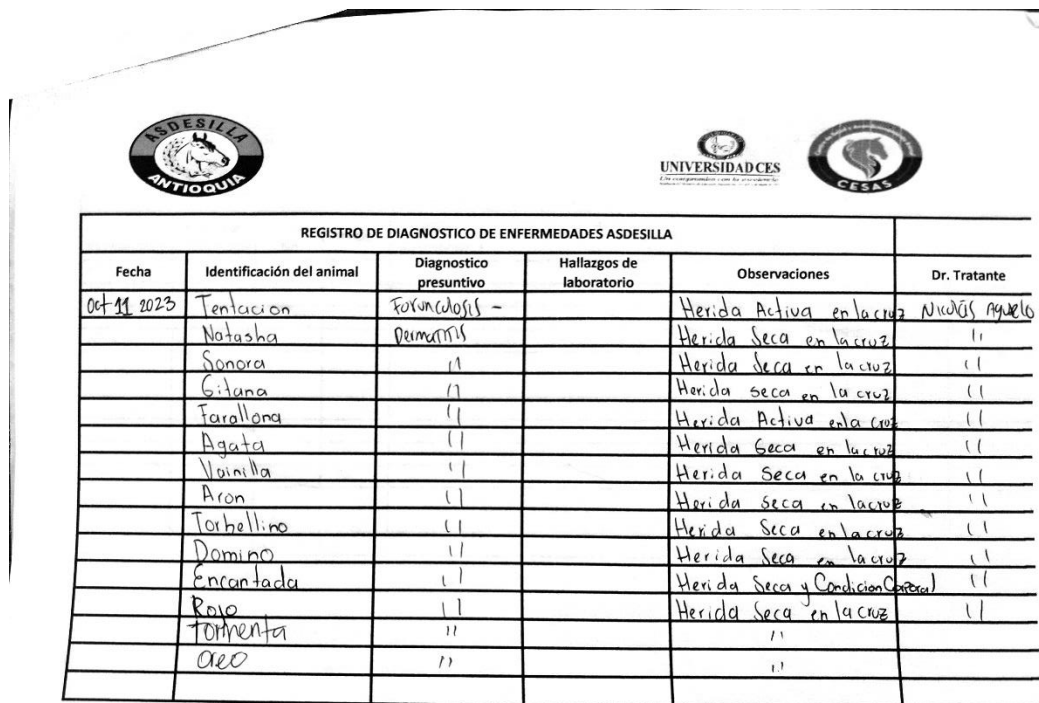 ASDESILLA
ANTIOQUIA
UNIVERSIDAD CES
Un compromiso con la excelencia
CESAS
REGISTRO DE DIAGNOSTICO DE ENFERMEDADES ASDESILLA
Fecha Identificación del animal Diagnostico presuntivo Hallazgos de laboratorio Observaciones Dr. Tratante
Oct 11 2023 Tentacion Forunculosis - Herida Activa en la cruz Nicolás Agudelo
Natasha Dermatitis Herida Seca en la cruz "
Sonora " Herida Seca en la cruz "
Gitana " Herida seca en la cruz "
Farallona " Herida Activa en la cruz "
Agata " Herida Seca en la cruz "
Vainilla " Herida Seca en la cruz "
Aron " Herida seca en la cruz "
Torbellino " Herida Seca en la cruz "
Domino " Herida Seca en la cruz "
Encantada " Herida Seca y Condicion Corporal "
Rojo " Herida Seca en la cruz "
Tormenta " "
Oreo " "